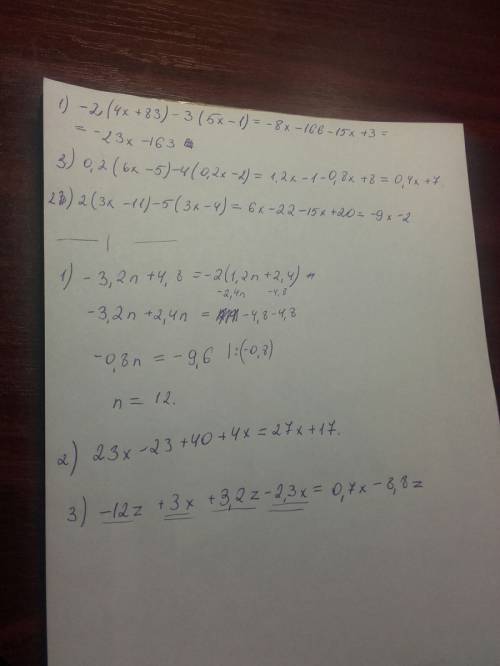 1) -2(4x+83)-3(5x-1)=-8x-166-15x+3=
= -23x-163
3) 0,2(6x-5)-4(0,2x-2)=1,2x-1-0,8x+8=0,4x+7.
2) 2(3x-11)-5(3x-4)=6x-22-15x+20=-9x-2
1) -3,2n+4,8=-2(1,2n+2,4)
-2,4n -4,8
-3,2n+2,4n = -4,8-4,8
-0,8n = -9,6 |:(-0,8)
n = 12.
2) 23x-23+40+4x=27x+17.
3) -12z +3x +3,2z-2,3x= 0,7x-8,8z